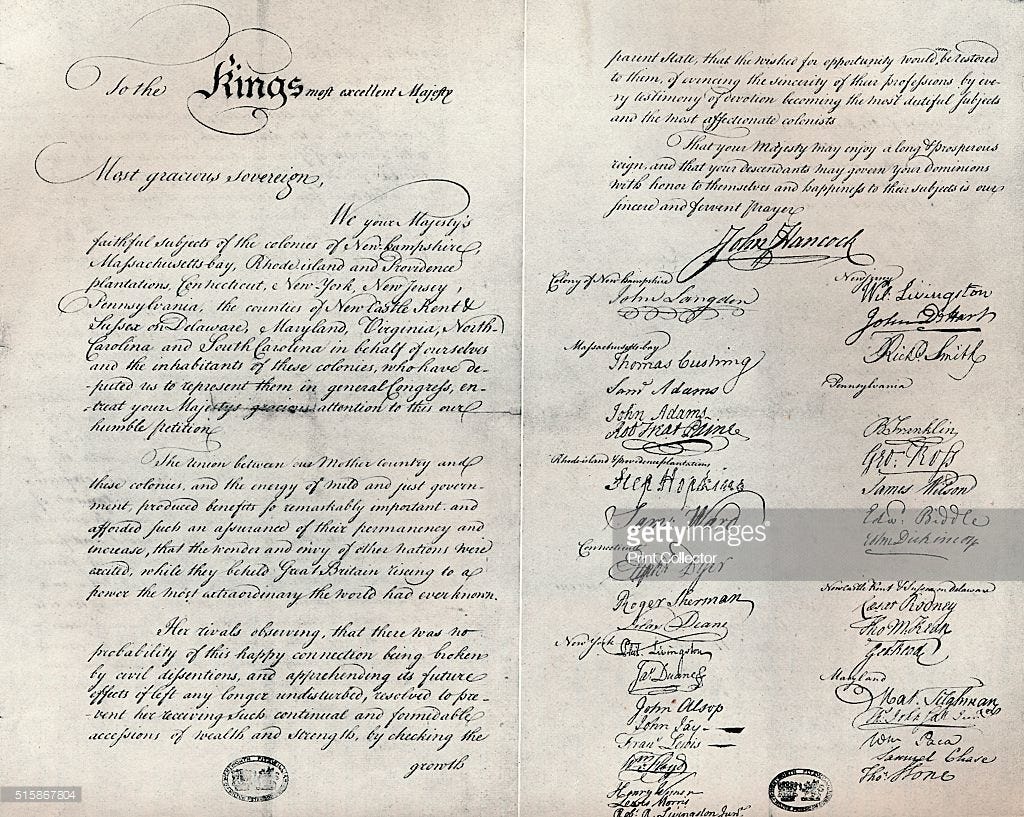 To the Kings most excellent Majesty
Most gracious sovereign,
We your Majesty's
faithful subjects of the colonies of New-hampshire,
Massachusetts-bay, Rhode island and Providence
plantations, Connecticut, New-York, New Jersey,
Pennsylvania, the counties of New Castle Kent &
Sussex on Delaware, Maryland, Virginia, North-
Carolina and South Carolina in behalf of ourselves
and the inhabitants of these colonies, who have de-
-puted us to represent them in general Congress, en-
-treat your Majestys gracious attention to this our
humble petition
The union between our Mother Country and
these colonies, and the energy of mild and just govern-
ment, produced benefits so remarkably important and
afforded such an assurance of their permanency and
increase, that the wonder and envy of other nations were
excited, while they beheld Great Britain rising to a
power the most extraordinary the world had ever known.
Her rivals observing, that there was no
probability of this happy connection being broken
by civil dissentions, and apprehending its future
effects if left any longer undisturbed, resolved to pre-
-vent her receiving such continual and formidable
accessions of wealth and strength, by checking the
growth
parent State, that the wished for opportunity would be restored
to them, of evincing the sincerity of their professions by eve-
ry testimony of devotion becoming the most dutiful subjects
and the most affectionate colonists
That your Majesty may enjoy a long & prosperous
reign, and that your descendants may govern your dominions
with honor to themselves and happiness to their subjects is our
sincere and fervent Prayer
John Hancock
Colony of New hampshire
John Langdon
Massachusetts-bay
Thomas Cushing
Saml Adams
John Adams
Rob Treat Paine
Rhode island & providence plantations
Step Hopkins
Sam: Ward
Connecticut
Elipht Dyer
Roger Sherman
Silas Deane
New York
Phil. Livingston
Jas Duane
John Alsop
John Jay
Frans Lewis
Wm Floyd
Henry Wisner
Lewis Morris
Rob. R. Livingston Junr.
New Jersey
Wil: Livingston
John D Hart
Richd Smith
Pennsylvania
B Franklin
Geo: Ross
James Wilson
Edw. Biddle
New Castle Kent & Sussex on Delaware
Caesar Rodney
Tho M:Kean
Geo Read
Maryland
Mat. Tilghman
Wm Paca
Samuel Chase
Tho: Stone
gettyimages
Print Collector
515867804